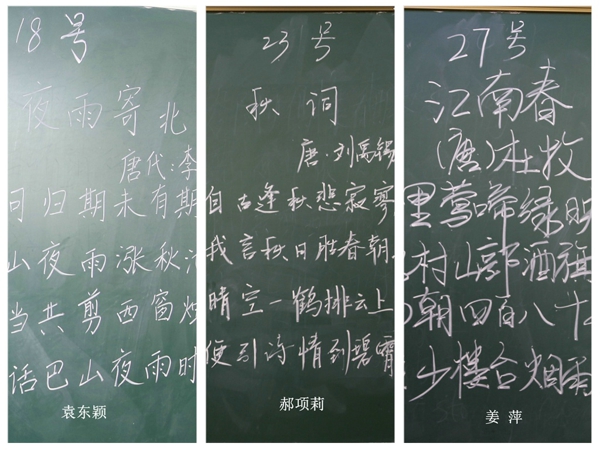 18号
夜雨寄北
唐代:李
归期未有期
山夜雨涨秋
当共剪西窗烛
话巴山夜雨时
袁东颖
23号
秋词
唐·刘禹锡
自古逢秋悲寂寥
我言秋日胜春朝
晴空一鹤排云上
便引诗情到碧霄
郝项莉
27号
江南春
(唐)杜牧
里莺啼绿映
村山郭酒旗
朝四百八十
少楼台烟雨
姜萍